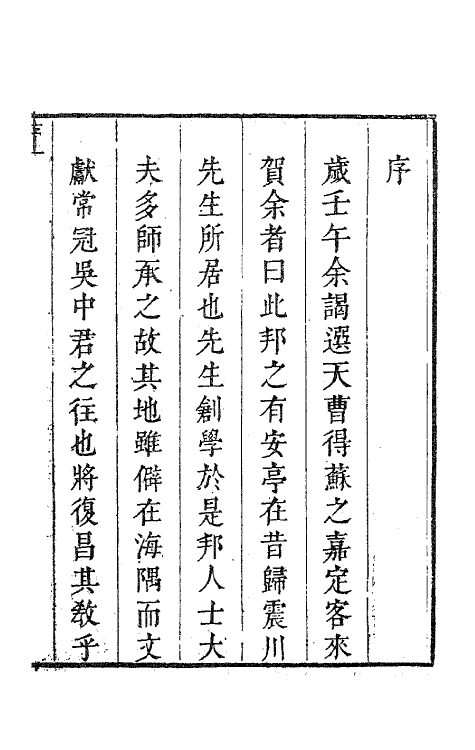 序
歲壬午余謁選天曹得蘇之嘉定客來
賀余者曰此邦之有安亭在昔歸震川
先生所居也先生創學於是邦人士大
夫多師承之故其地雖僻在海隅而文
獻常冠吳中君之往也將復昌其教乎